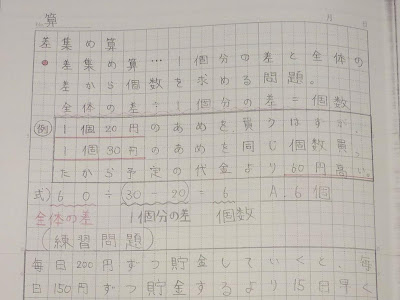 No. 算 月 日
差集め算
・差集め算…1個分の差と全体の
差から個数を求める問題。
全体の差÷1個分の差=個数
例 1個20円のあめを買うはずが、
1個30円のあめを同じ個数買っ
たから予定の代金より60円高い。
式)60÷(30-20)=6 A.6個
全体の差 1個分の差 個数
(練習問題)
毎日200円ずつ貯金していくと、毎
日150円ずつ貯金するより15日早く